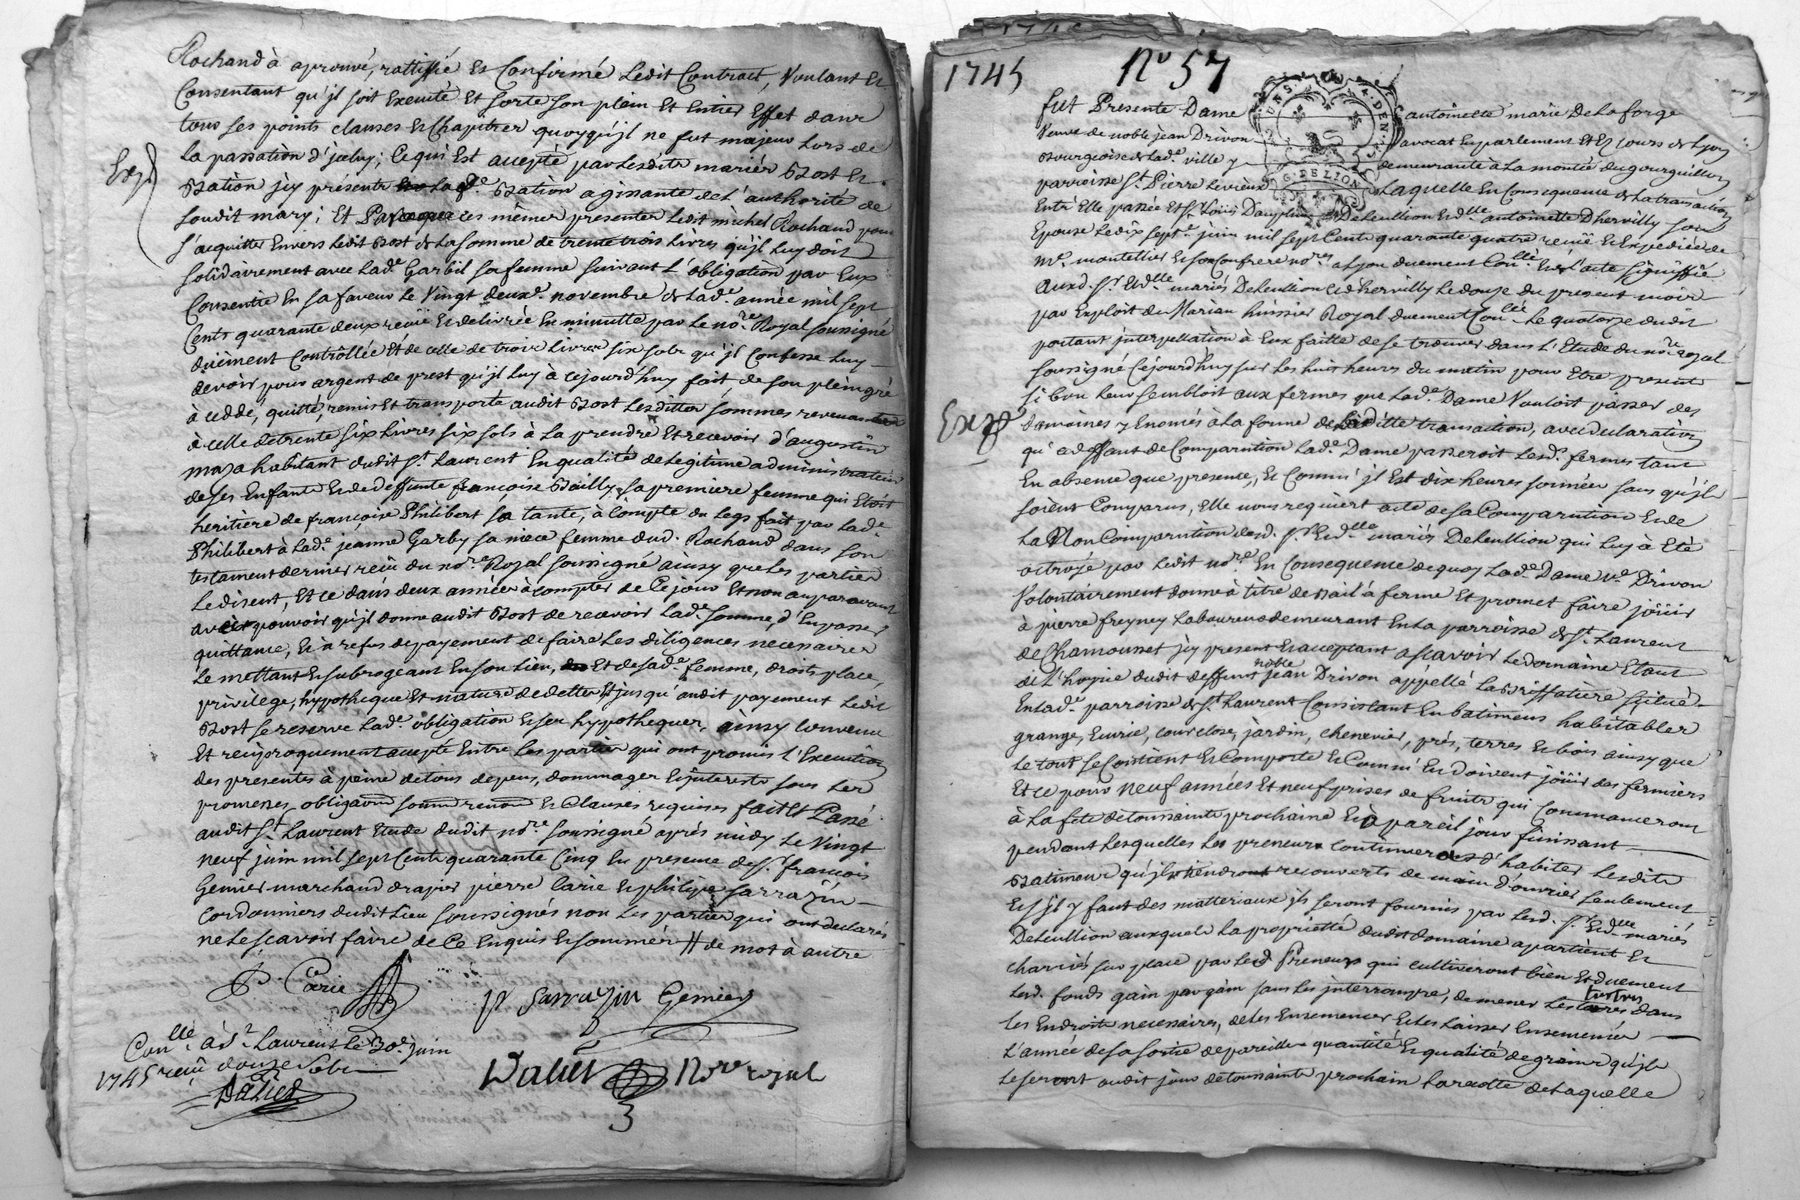 Rochand à aprouvé, rattiffié Et Confirmé Ledit Contract, Voulant Et
Consentant qu'jl soit Executé Et sorte son plein Et Entier Effet dans
tous ses points clauses Et Chapitres quoyqu'jl ne fut majeur Lors de
la passation d'jceluy; Ce qui Est accepté par Lesdits mariés Bost Et
Expé
Bation jcy présents La de Bation agissante de L'authorité de
soudit mary; Et Par ces mêmes presentes Ledit michel Rochand pour
s'acquitter Envers Ledit Bost de La somme de trente trois Livres qu'jl Luy doit
solidairement avec Lade Garbil sa femme suivant L'obligation par Eux
Consentie En sa faveur Le Vingt deuxe novembre de Lade année mil sept
Cents quarante deux reçüe Et delivrée En minutte par Le nore Royal soussigné
düement Contrôllée Et de celle de trois Livres six sols qu'jl Confesse Luy
devoir pour argent de prest qu'jl Luy à cejourd'huy fait de son plein gré
à ceddé, quitté, remis Et transporté audit Bost Lesdittes sommes revenantes
à celle de trente six Livres six sols à La prendre Et recevoir d'augustin
maza habitant dudit St Laurent En qualité de Legitime administrateur
de ses Enfants Et de deffunte françoise Bailly sa premiere femme qui Etoit
heritiere de françoise Philibert sa tante, à compte du Legs fait par Lade
Philibert à Lade jeanne Garby sa niece femme dud. Rochand dans son
testament dernier reçu du nore Royal soussigné ainsy que Les parties
Le disent, Et ce dans deux années à compter de Ce jour Et non auparavant
avec pouvoir qu'jl donne audit Bost de recevoir Lade somme, d'En passer
quittance, Et à refus de payement de faire Les diligences necessaires
Le mettant Et subrogeant En son Lieu, Et de sade femme, droits, place,
privilege, hypotheque Et nature de dettes Et jusqu'audit payement Ledit
Bost se reserve Lade obligation Et ses hypotheques, ainsy convenu
Et reciproquement accepté Entre Les parties qui ont promis L'Execution
des presentes à peine de tous depens, dommages Et jnterests sous Les
promesses, obligaons soumons renons Et Clauses requises fait Et Passé
audit St Laurent Etude dudit nore soussigné aprés midy Le Vingt
neuf juin mil sept Cents quarante Cinq En presence de Sr françois
Gemier marchand drapier pierre Carie Et philipe sarrazin
cordonniers dudit Lieu soussignés non Les parties qui ont declarés
ne Le sçavoir faire de Ce Enquis Et sommés // de mot à autre
P. Carie
p. sarrazin Gemier
Conllé à St Laurens Le 30e juin
1745 reçu douze sols
Daliet
Daliet Nore royal
1745
No 57
Fut Presente Dame antoinette marie De La forge
Veuve de noble jean Drivon avocat En parlement Et Es cours de Lyon
Bourgeoise de Lade ville y demeurante à La montée du gourguillon
parroisse St Pierre Levieux Laquelle En Consequence de La transaction
Entre Elle passée Et Sr Loüis Dauphin Deheullion Et dlle antoinette Dhervilly son
Epouse Le dix sept juin mil sept Cents quarante quatre reçüe Et Expediée
Me mantellier Et son Confrere nores à Lyon duement Conllé Et L'acte signiffié
auxd. Sr Et dlle mariés Deheullion Et dhervilly Le douze du present mois
par Exploit de Marian huissier Royal duement Conllé Le quatorze dudit
portant jnterpellation à Eux faitte de se trouver dans L'Etude du nore royal
soussigné Cejourd'huy sur Les huit heures du matin pour Etre presents
si bon Leur sembloit aux fermes que Lade Dame Vouloit passer des
Expé
domaines y Enomés à La forme de Laditte transaction, avec declaration
qu'à deffaut de Comparution Lade Dame passeroit Lesd. fermes tant
En absence que presence, Et Comm' jl Est dix heures sonnées sans qu'jls
soient Comparus, Elle nous requiert acte de sa Comparution Et de
La Non Comparution desd. Sr Et dlle mariés Deheullion qui Luy à Eté
octroyé par Ledit nore En Consequence de quoy Lade Dame Ve Drivon
Volontairement donne à titre de Bail à ferme Et promet faire joüir
à pierre freyney Laboureur demeurant En La parroisse de St Laurent
de Chamousset jcy present Et acceptant à sçavoir Le domaine Etant
de L'hoyrie dudit deffunt noble jean Drivon appellé La Briffatiere scitué
En lade parroisse de St Laurent Consistant En batimens habitables
grange, Ecurie, cour close, jardin, chenevier, prés, terres Et bois ainsy que
Le tout se Contient Et Comporte Et Comm' En doivent joüir des fermiers
Et ce pour neuf années Et neuf prises de fruits qui Commanceront
à La fête de toussaints prochaine Et à pareil jour finissant
pendant Lesquelles Les preneurs continueront d'habiter Lesdits
Batimens qu'jls tiendront recouverts de main d'ouvrier seulement
Et s'jl y faut des matteriaux jls seront fournis par Lesd. Sr Et dlle mariés
Deheullion auxquels La proprietté dudit domaine apartient Et
charriés sur place par Lesd. Preneurs qui cultiveront bien Et duement
Lesd. fonds gain par gain sans Les jnterrompre, de mener Les terres dans
Les Endroits necessaires, de Les Ensemencer Et Les Laisser Ensemencés
L'année de sa sortie de pareille quantité Et qualité de grains qu'jls
Le seront audit jour de toussaints prochain La recolte de Laquelle